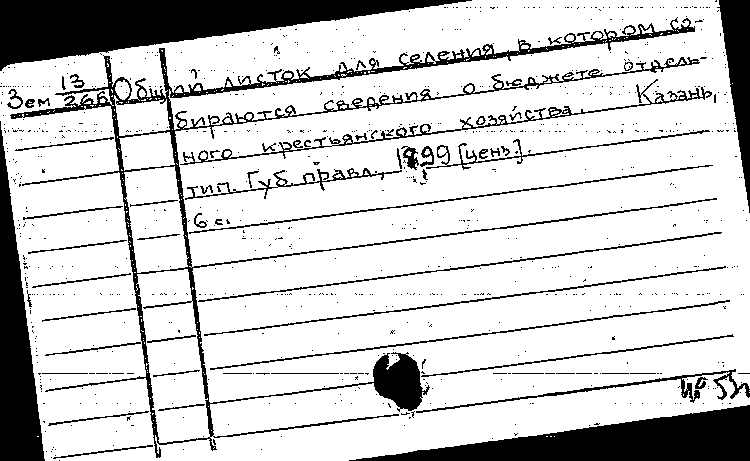 Зем 13/266 Общий листок для селения, в котором со-
бираются сведения о бюджете отдель-
ного крестьянского хозяйства. Казань,
тип. Губ. правл., 1899 [ценз.].
6 с.